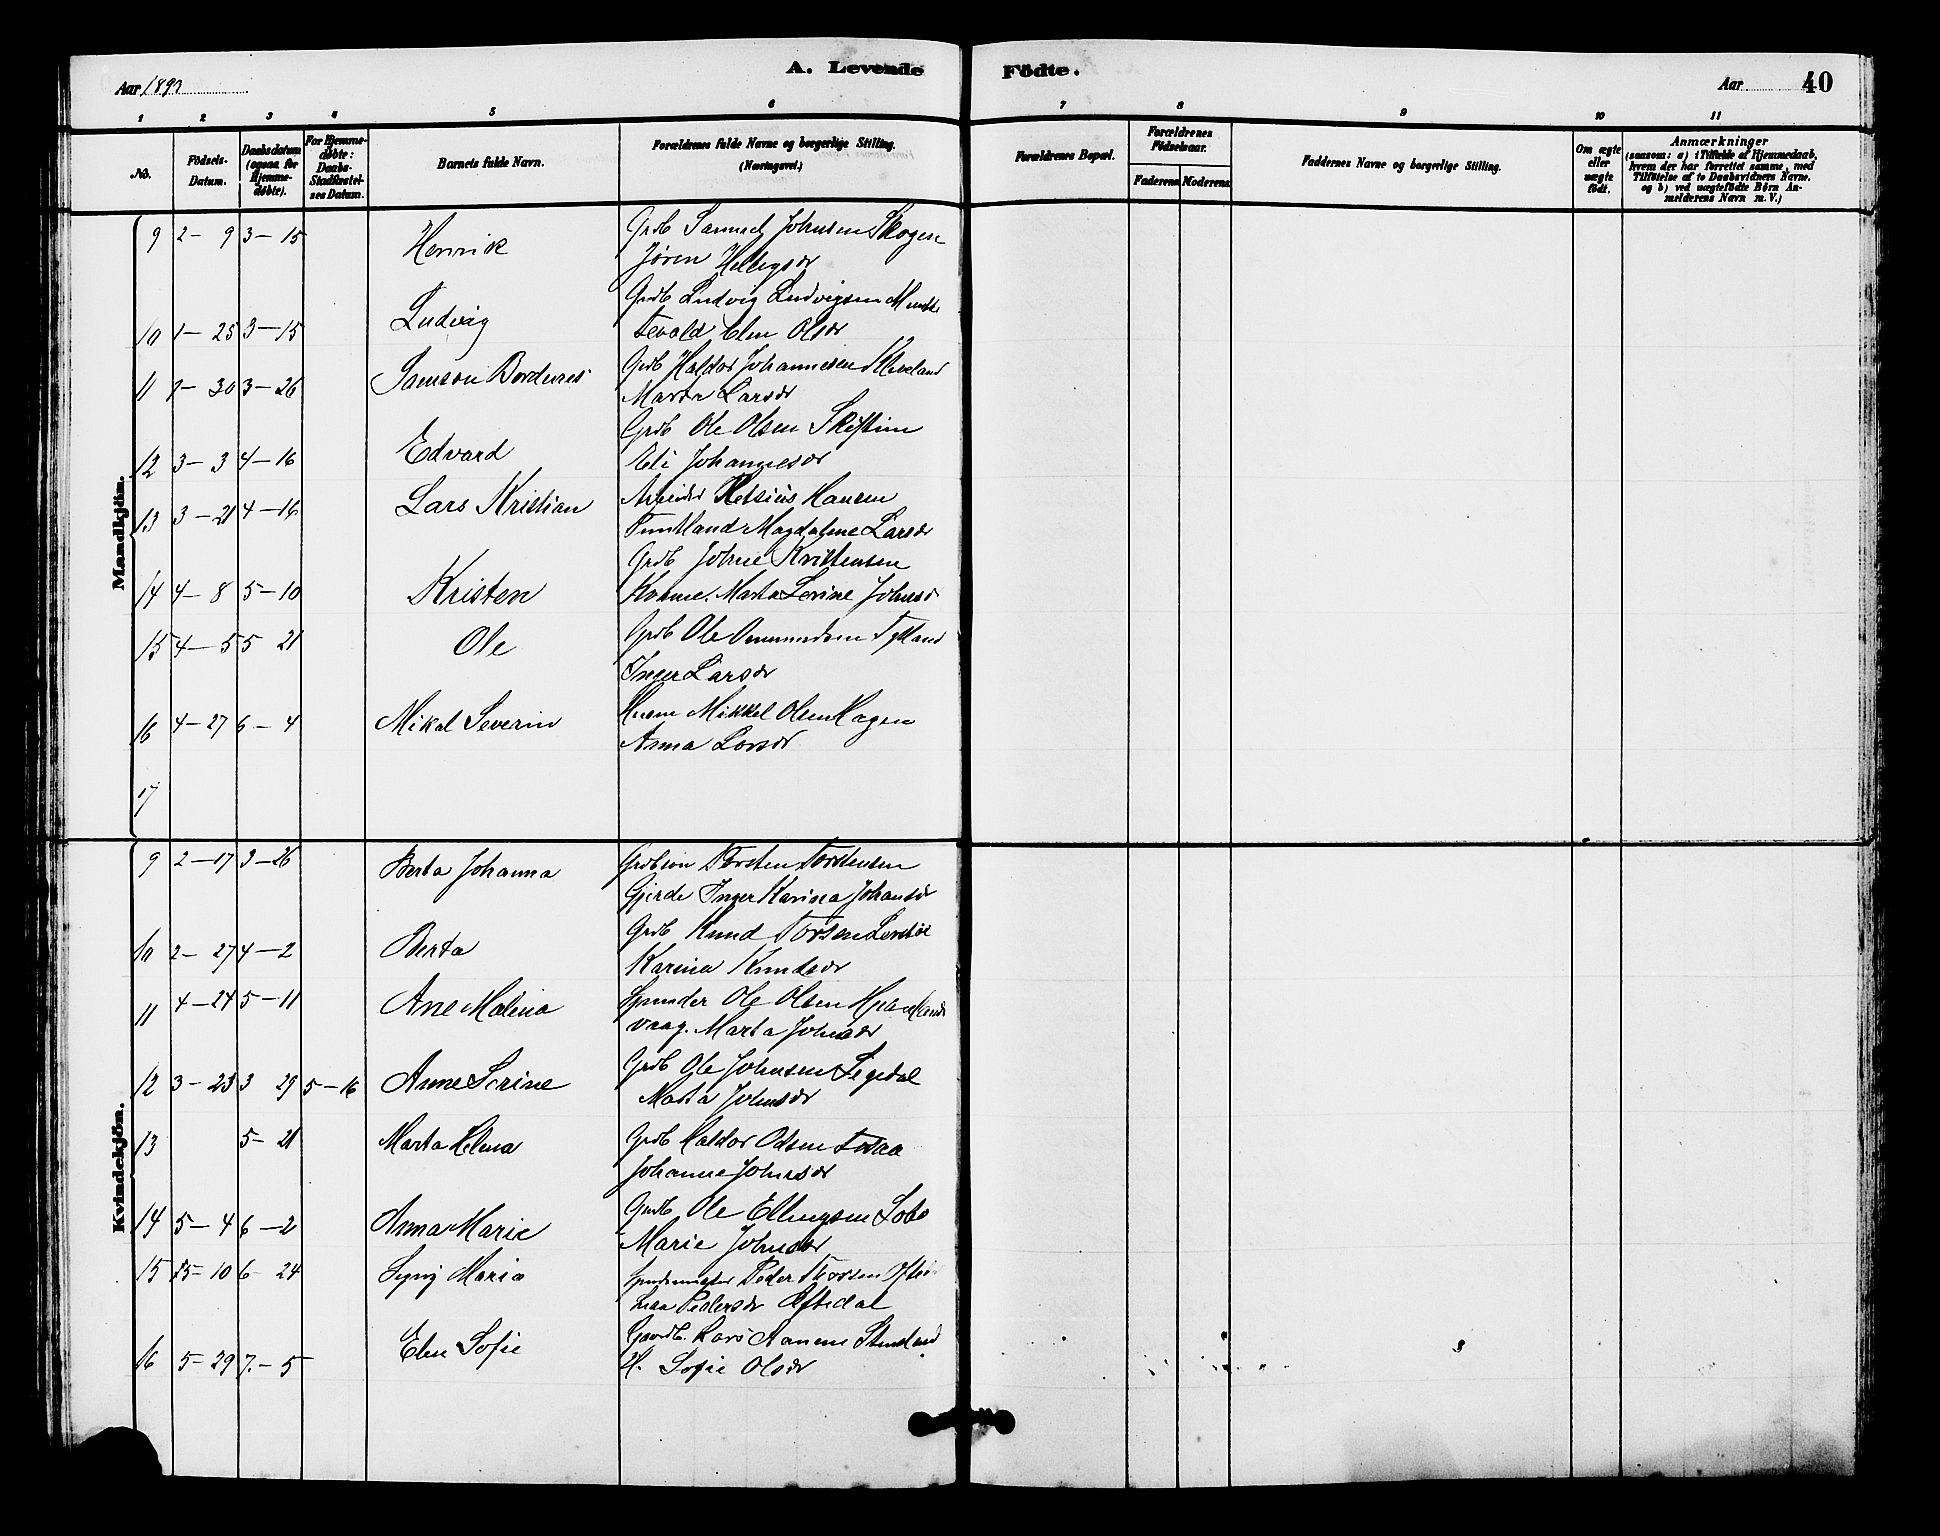 A. Levende Födte.
Aar 1893
Aar 40
1 2 3 4 5 6 7 8 9 10 11
No.
Födsels-Datum.
Daabsdatum (ogsaa for Hjemme-døbte).
For Hjemme-døbte: Daabs-Stadfæstel-ses Datum.
Barnets fulde Navn.
Forældrenes fulde Navne og borgerlige Stilling.
(Næringsvei.)
Forældrenes Bopæl.
Forældrenes Födselsaar.
Faderens. Moderens.
Faddernes Navne og borgerlige Stilling.
Om ægte eller uægte födt.
Anmærkninger
(saasom: a) i Tilfælde af Hjemmedaab,
hvem der har forrettet samme, med
Tilföielse af to Daabsvidners Navne,
og b) ved uægtefödte Børn An-
melderens Navn m. V.)
Mandkjön.
9 2-9 3-15 Henrik Grdb Samuel Johnsen Skogen
Jøren Helleysdr
10 1-25 3-15 Ludvig Grdb Ludvig Ludvigsen
Elen Olsdr
11 1-30 3-26 Samson Grdb Haldor Johannesen
Marta Larsdr
12 3-3 4-16 Edvard Grdb Ole Olsen
Eli Johannesdr
13 3-21 4-16 Lars Kristian Arbeider Hansen
Magdalene Larsdr
14 4-8 5-10 Kristen Grdb Johne Kristensen
Marta Serine Johnsd
15 4-5 5 21 Ole Grdb Ole Tytland
Inger Larsdr
16 4-27 6-4 Mikal Severin Mikkel Olsen Hagen
Anna Larsdr
17
Kvindekjön.
9 2-17 3-26 Berta Johanna Torsten Torstensen
Gjerde Inger Karina Johansdr
10 2-27 4-2 Berta Grdb Knud Torsen
Karina Knudsdr
11 4-24 5-11 Ane Malina Ole Olsen
vaag. Marta Johnsdr
12 3-23 3 29 5-16 Anne Serine Grdb Ole Johnsen Segedal
Marta Johnsdr
13 5-21 Marta Helena Grdb Haldor Odsen
Johanne Johnsdr
14 5-4 6-2 Anna Marie Grdb Ole Ellingsen
Marie Johnsdr
15 5-10 6-24 Maria Peder
Pedersdr Oftedal
16 5-29 7-5 Elen Sofie Gaardb. Lars
H. Sofie Olsdr